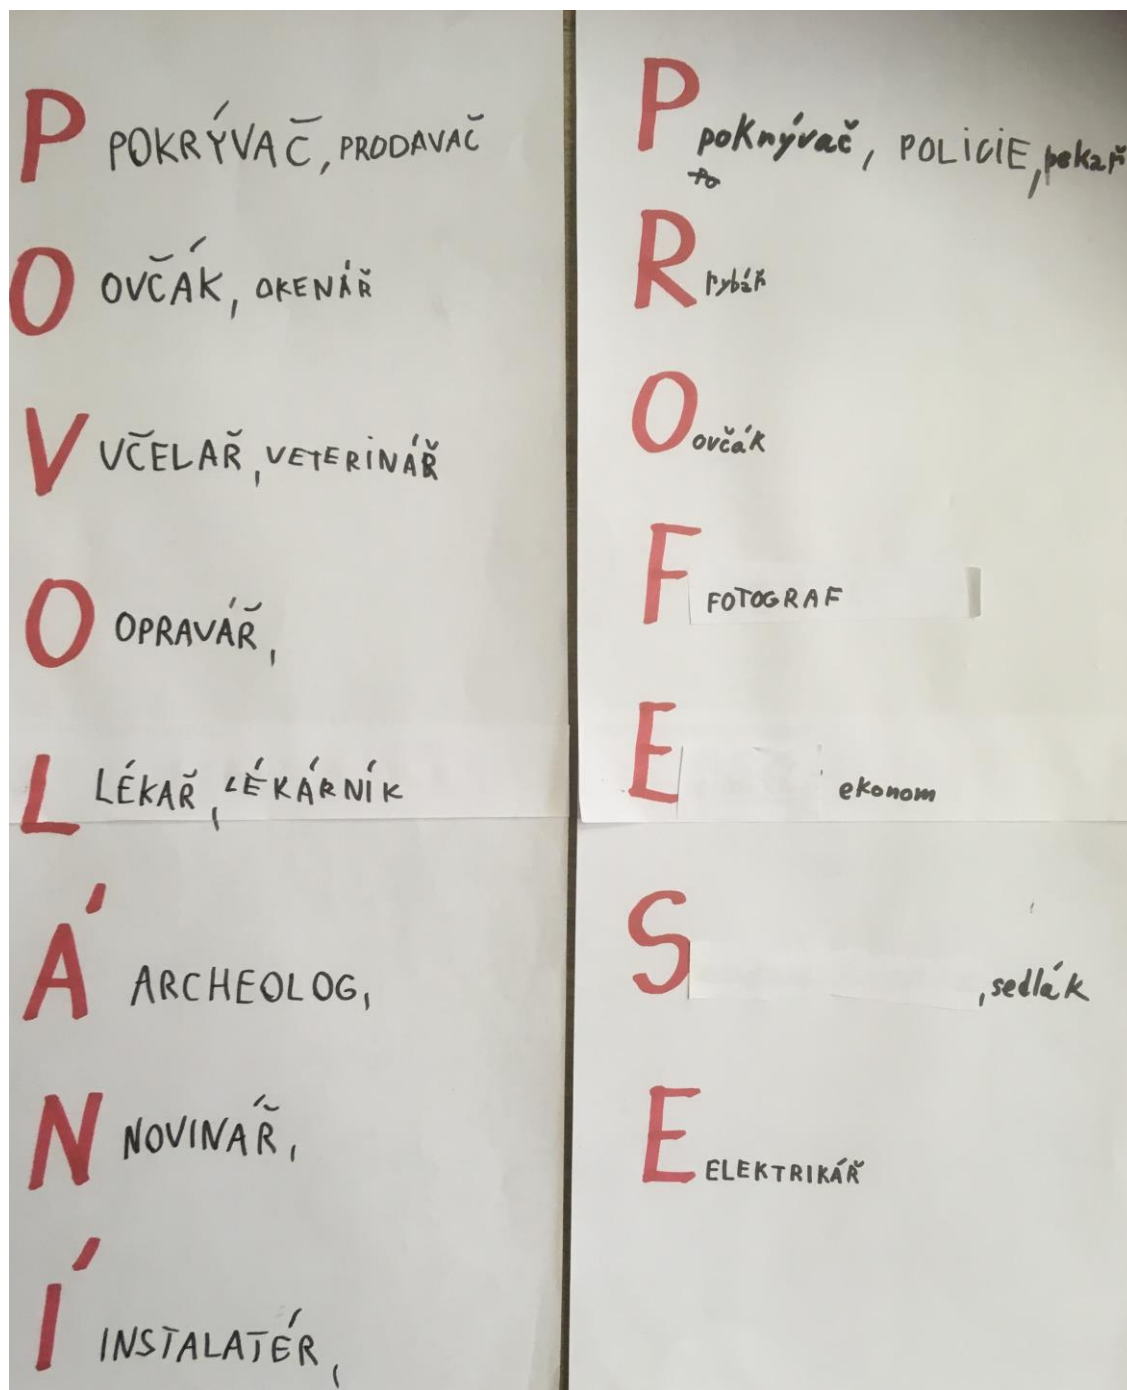 P POKRÝVAČ, PRODAVAČ
O OVČÁK, OKENÁŘ
V VČELAŘ, VETERINÁŘ
O OPRAVÁŘ,
L LÉKAŘ, LÉKÁRNÍK
Á ARCHEOLOG,
N NOVINÁŘ,
Í INSTALATÉR,
P pokrývač, POLICIE, pekař
po
R rybář
O ovčák
F FOTOGRAF
E ekonom
S , sedlák
E ELEKTRIKÁŘ